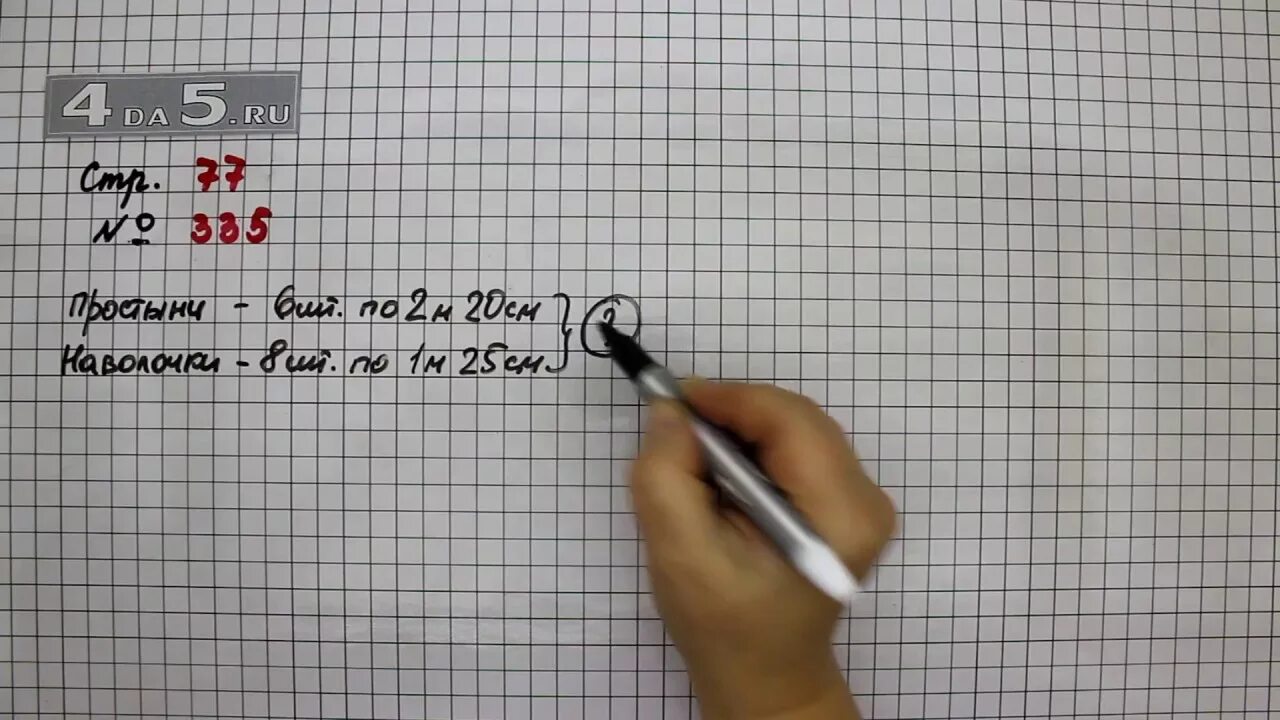 4DA5.RU
Стр. 77
№ 335
Простыни - 6шт. по 2м 20см
Наволочки - 8шт. по 1м 25см.
?